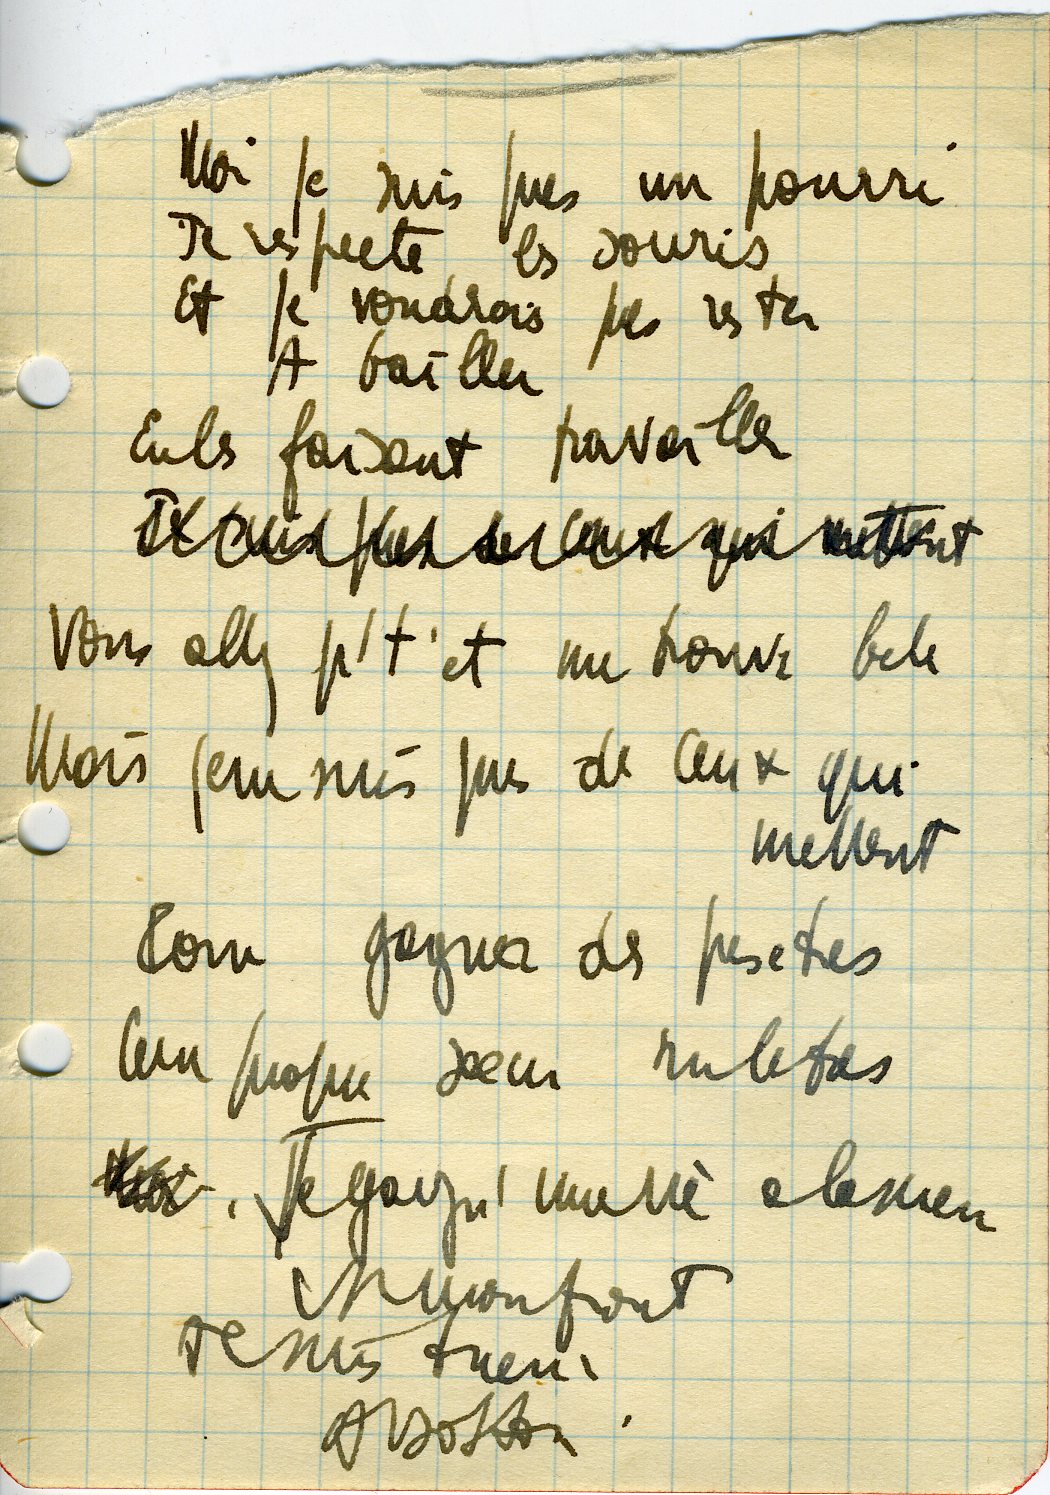 Moi je suis pas un pourri
Je respecte les souris
Et je voudrais pas rester
A bailler
En les faisant travailler
Je suis pas de ceux qui mettent
Vous allez p't'et me trouver bete
Mais jem suis pas de ceux qui
mettent
Pour gagner des pesetes
Leur propre soeur
Moi, Je gagn' ma vie
mon front
Je suis tueur
A Boston.